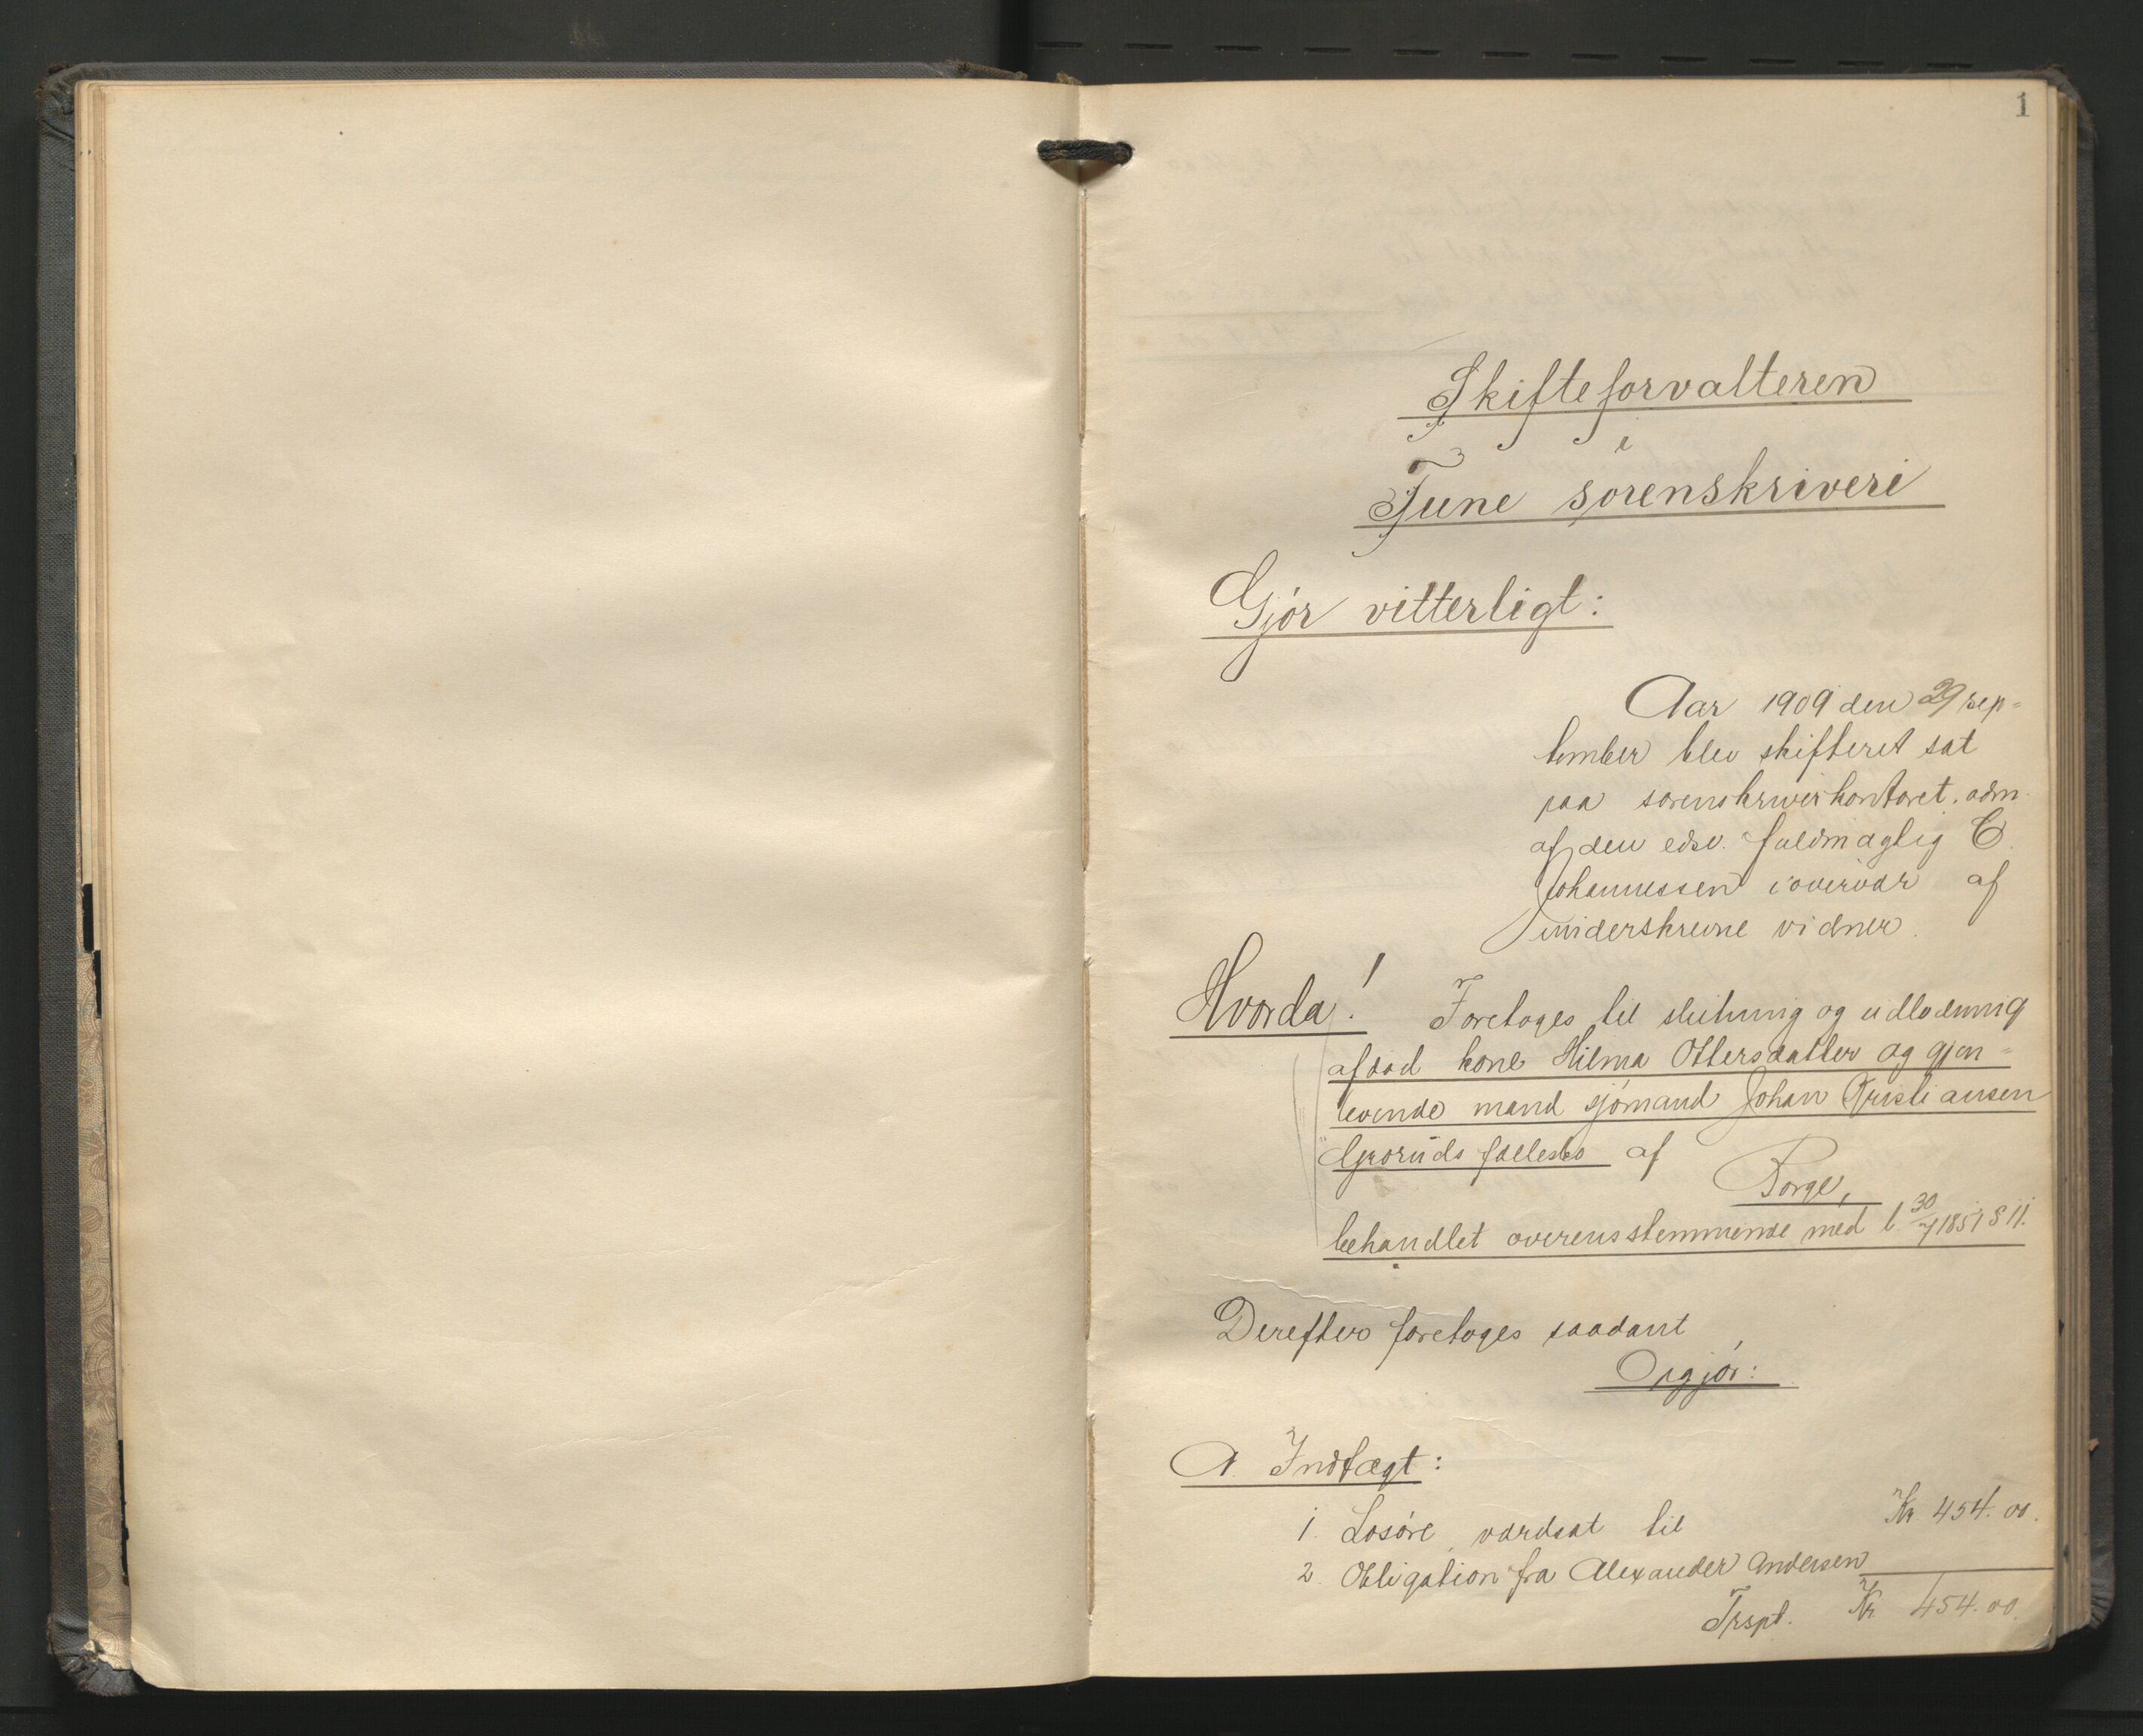 1
Skifteforvalteren
i
Tune sorenskriveri
Gjør vitterligt:
Aar 1909 den 29 sep-
tember blev skifteret sat
paa sorenskriverkontoret, adm.
af den edsv. fuldmægtig C.
Johannessen i overvær af
underskrevne vidner.
Hvorda! Foretoges til slutning og udlodning
afdød kone Hilma Ottersdatter og gjen-
levende mand sjømand Johan Kristiansen
Groruds fællesbo af
Borge,
behandlet overensstemmende med l. 30/7 1851 § 11.
Derefter foretoges saadant
Opgjør:
A. Indtægt:
1. Løsøre, værdsat til Kr. 454.00.
2. Obligation fra Alexander Andersen
Trspt. Kr 454.00.